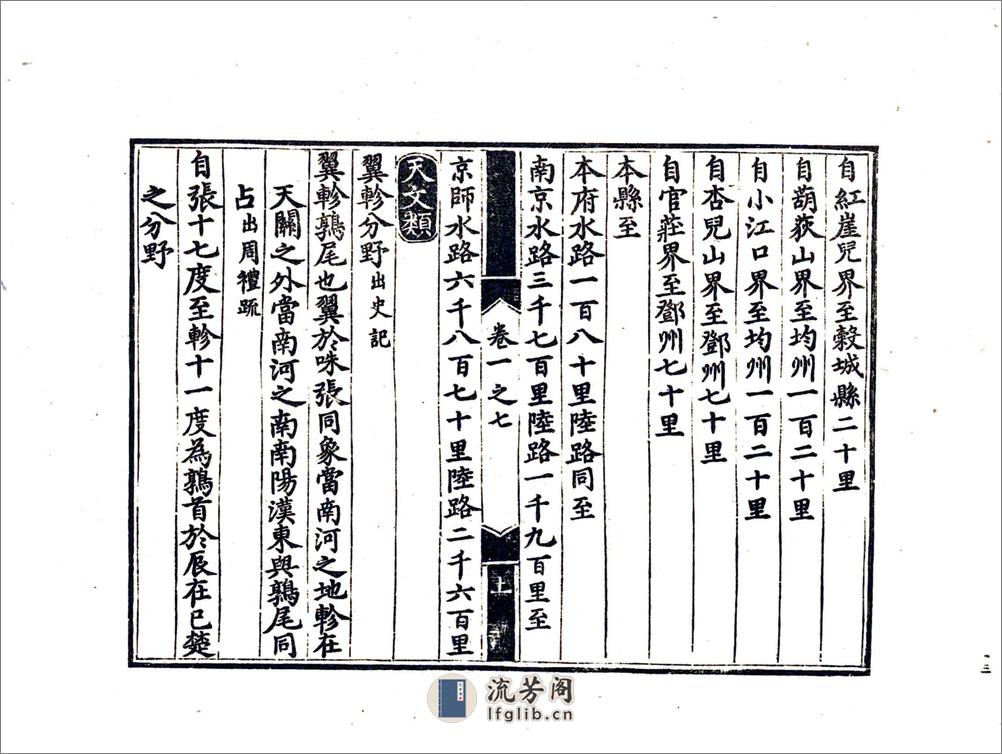 自紅崖兒界至穀城縣二十里
自葫荻山界至均州一百二十里
自小江口界至均州一百二十里
自杏兒山界至鄧州七十里
自官莊界至鄧州七十里
本縣至
本府水路一百八十里陸路同至
南京水路三千七百里陸路一千九百里至
卷一之七
上
京師水路六千八百七十里陸路二千六百里
天文類
翼軫分野出史記
翼軫鶉尾也翼於咮張同象當南河之地軫在
天關之外當南河之南南陽漢東與鶉尾同
占出周禮疏
自張十七度至軫十一度為鶉首於辰在巳楚
之分野
十三
流芳阁
lfglib.cn